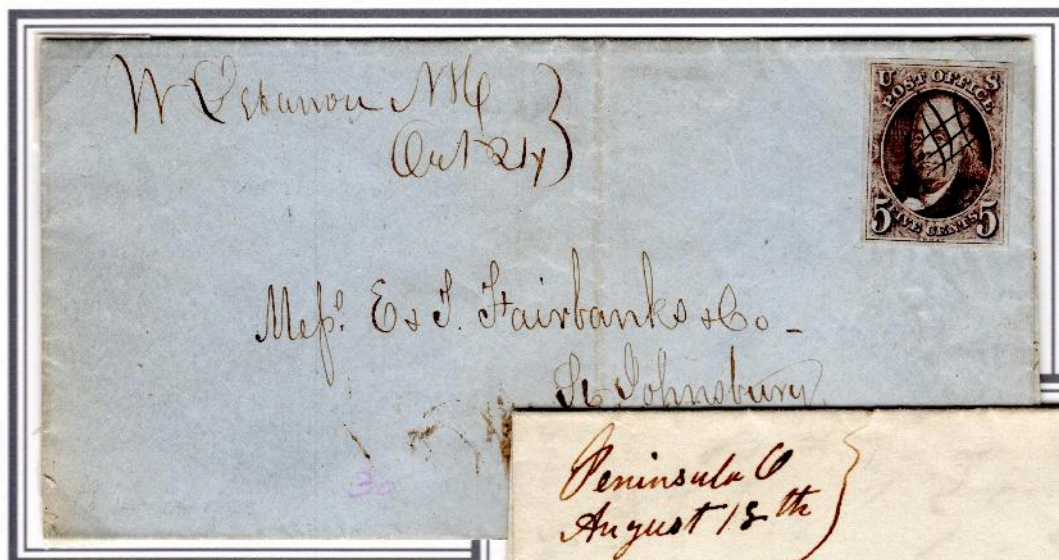 W Lebanon NH
Oct 21
U S
POST OFFICE
5 FIVE CENTS 5
Mess. E & T. Fairbanks & Co -
St Johnsbury
30
Peninsula O
August 13th